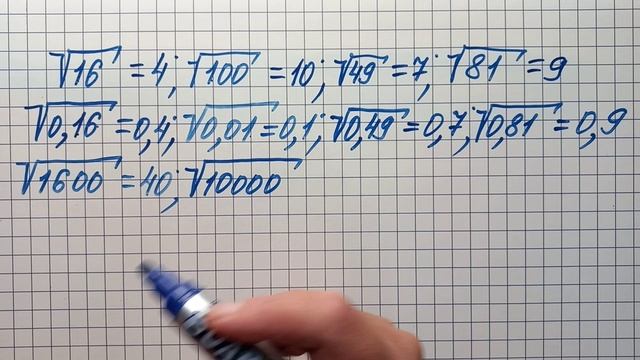 √16 = 4; √100 = 10; √49 = 7; √81 = 9
√0,16 = 0,4; √0,01 = 0,1; √0,49 = 0,7; √0,81 = 0,9
√1600 = 40; √10000